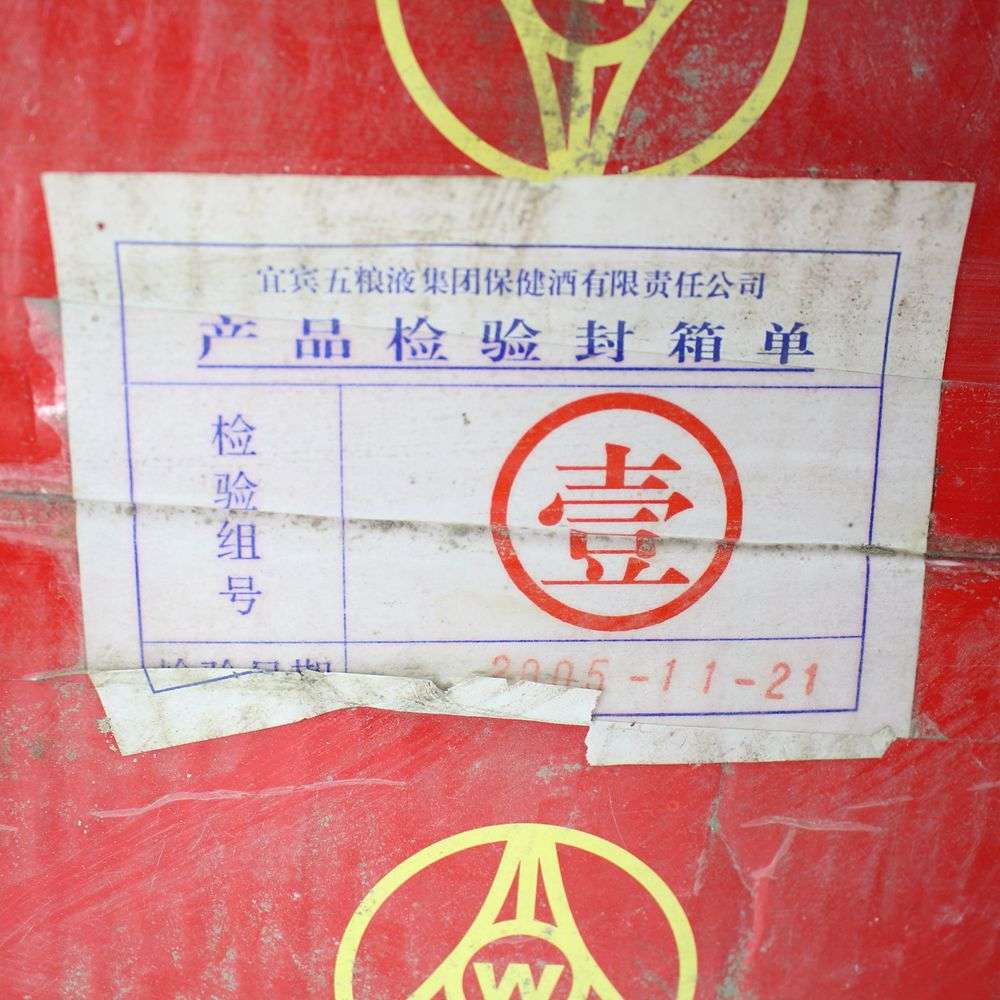 宜宾五粮液集团保健酒有限责任公司
产品检验封箱单
检验组号
壹
检验日期
2005-11-21
W